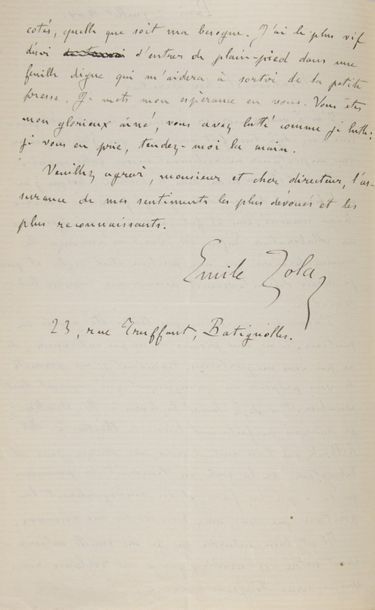 cotés, quelle que soit ma besogne. J'ai le plus vif
désir d'entrer de plain-pied dans une
feuille digne qui m'aidera à sortir de la petite
presse. Je mets mon espérance en vous. Vous êtes
mon glorieux aîné, vous avez lutté comme je lutte;
je vous en prie, tendez-moi la main.
Veuillez agréer, monsieur et cher directeur, l'as-
surance de mes sentiments les plus dévoués et les
plus reconnaissants.
Emile Zola
23, rue Truffaut, Batignolles.